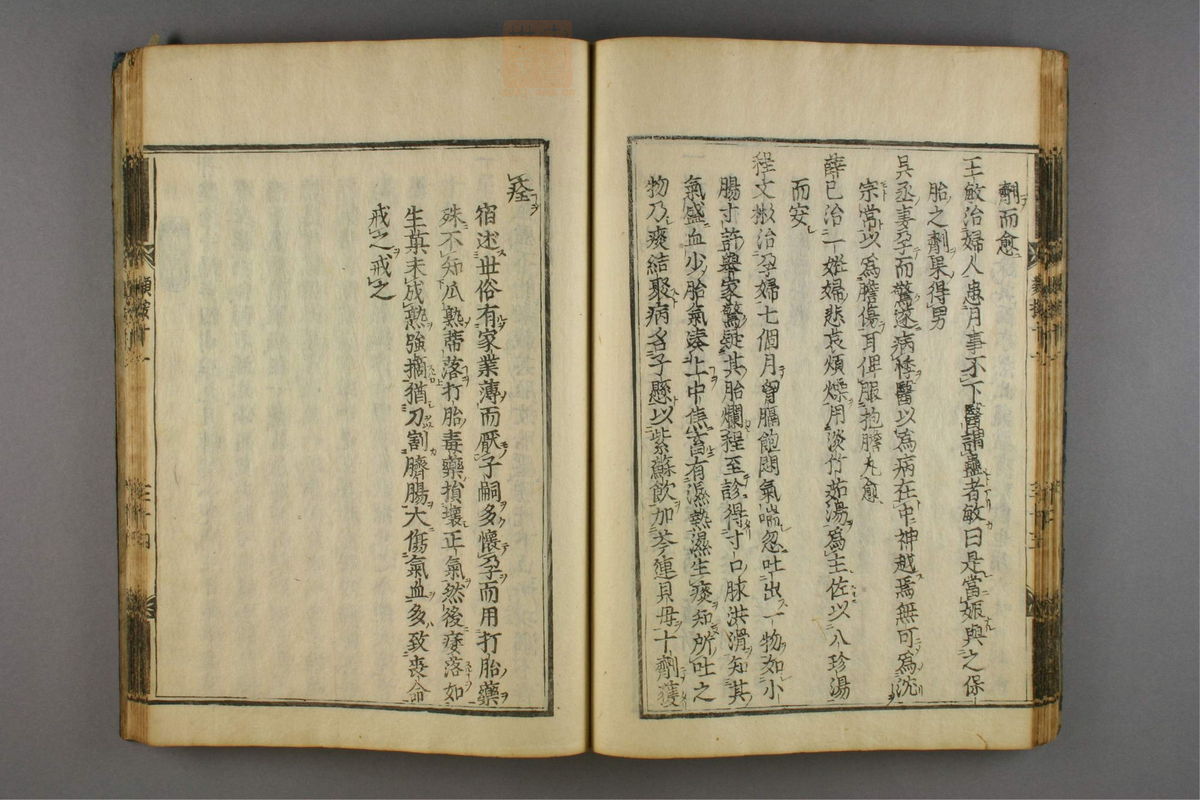 劑而愈
王敏治婦人患月事不下醫謂蠱者敏曰是當娠與之保
胎之劑果得男
吳丞妻孕而驚遂病悸醫以為病在中神越焉無可為沈
宗常以為膽傷耳俾服抱膽丸愈
薛已治一姙婦悲哀煩燥用淡竹茹湯為主佐以八珍湯
而安
程文彬治孕婦七個月胷膈飽悶氣喘忽吐出一物如小
腸寸許舉家驚疑其胎爛程至診得寸口脉洪滑知其
氣盛血少胎氣湊上中焦畜有濕熱濕生痰知所吐之
物乃痰結聚病名子懸以紫蘇飲加芩連貝母十劑獲
痊
宿述世俗有家業薄而厭子嗣多懷孕而用打胎藥
殊不知瓜熟蒂落打胎毒藥損壞正氣然後痿落如
生菓未成熟強摘猶刀割臍腸大傷氣血多致喪命
戒之戒之